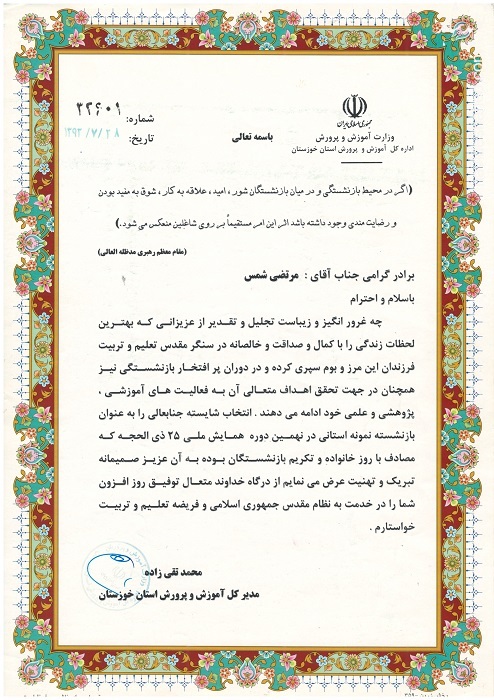 جمهوری اسلامی ایران
وزارت آموزش و پرورش
اداره کل آموزش و پرورش استان خوزستان
باسمه تعالی
شماره: ۳۲۶۰۹
تاریخ: ۱۳۹۳/۷/۲۸
(اگر در محیط بازنشستگی و در میان بازنشستگان شور، امید، علاقه به کار، شوق به مفید بودن
و رضایت مندی وجود داشته باشد اثر این امر مستقیماً بر روی شاغلین منعکس می شود.)
(مقام معظم رهبری مدظله العالی)
برادر گرامی جناب آقای : مرتضی شمس
باسلام و احترام
چه غرور انگیز و زیباست تجلیل و تقدیر از عزیزانی که بهترین
لحظات زندگی را با کمال و صداقت و خالصانه در سنگر مقدس تعلیم و تربیت
فرزندان این مرز و بوم سپری کرده و در دوران پر افتخار بازنشستگی نیز
همچنان در جهت تحقق اهداف متعالی آن به فعالیت های آموزشی ،
پژوهشی و علمی خود ادامه می دهند . انتخاب شایسته جنابعالی را به عنوان
بازنشسته نمونه استانی در نهمین دوره همایش ملی ۲۵ ذی الحجه که
مصادف با روز خانواده و تکریم بازنشستگان بوده به آن عزیز صمیمانه
تبریک و تهنیت عرض می نمایم از درگاه خداوند متعال توفیق روز افزون
شما را در خدمت به نظام مقدس جمهوری اسلامی و فریضه تعلیم و تربیت
خواستارم .
محمد تقی زاده
مدیر کل آموزش و پرورش استان خوزستان